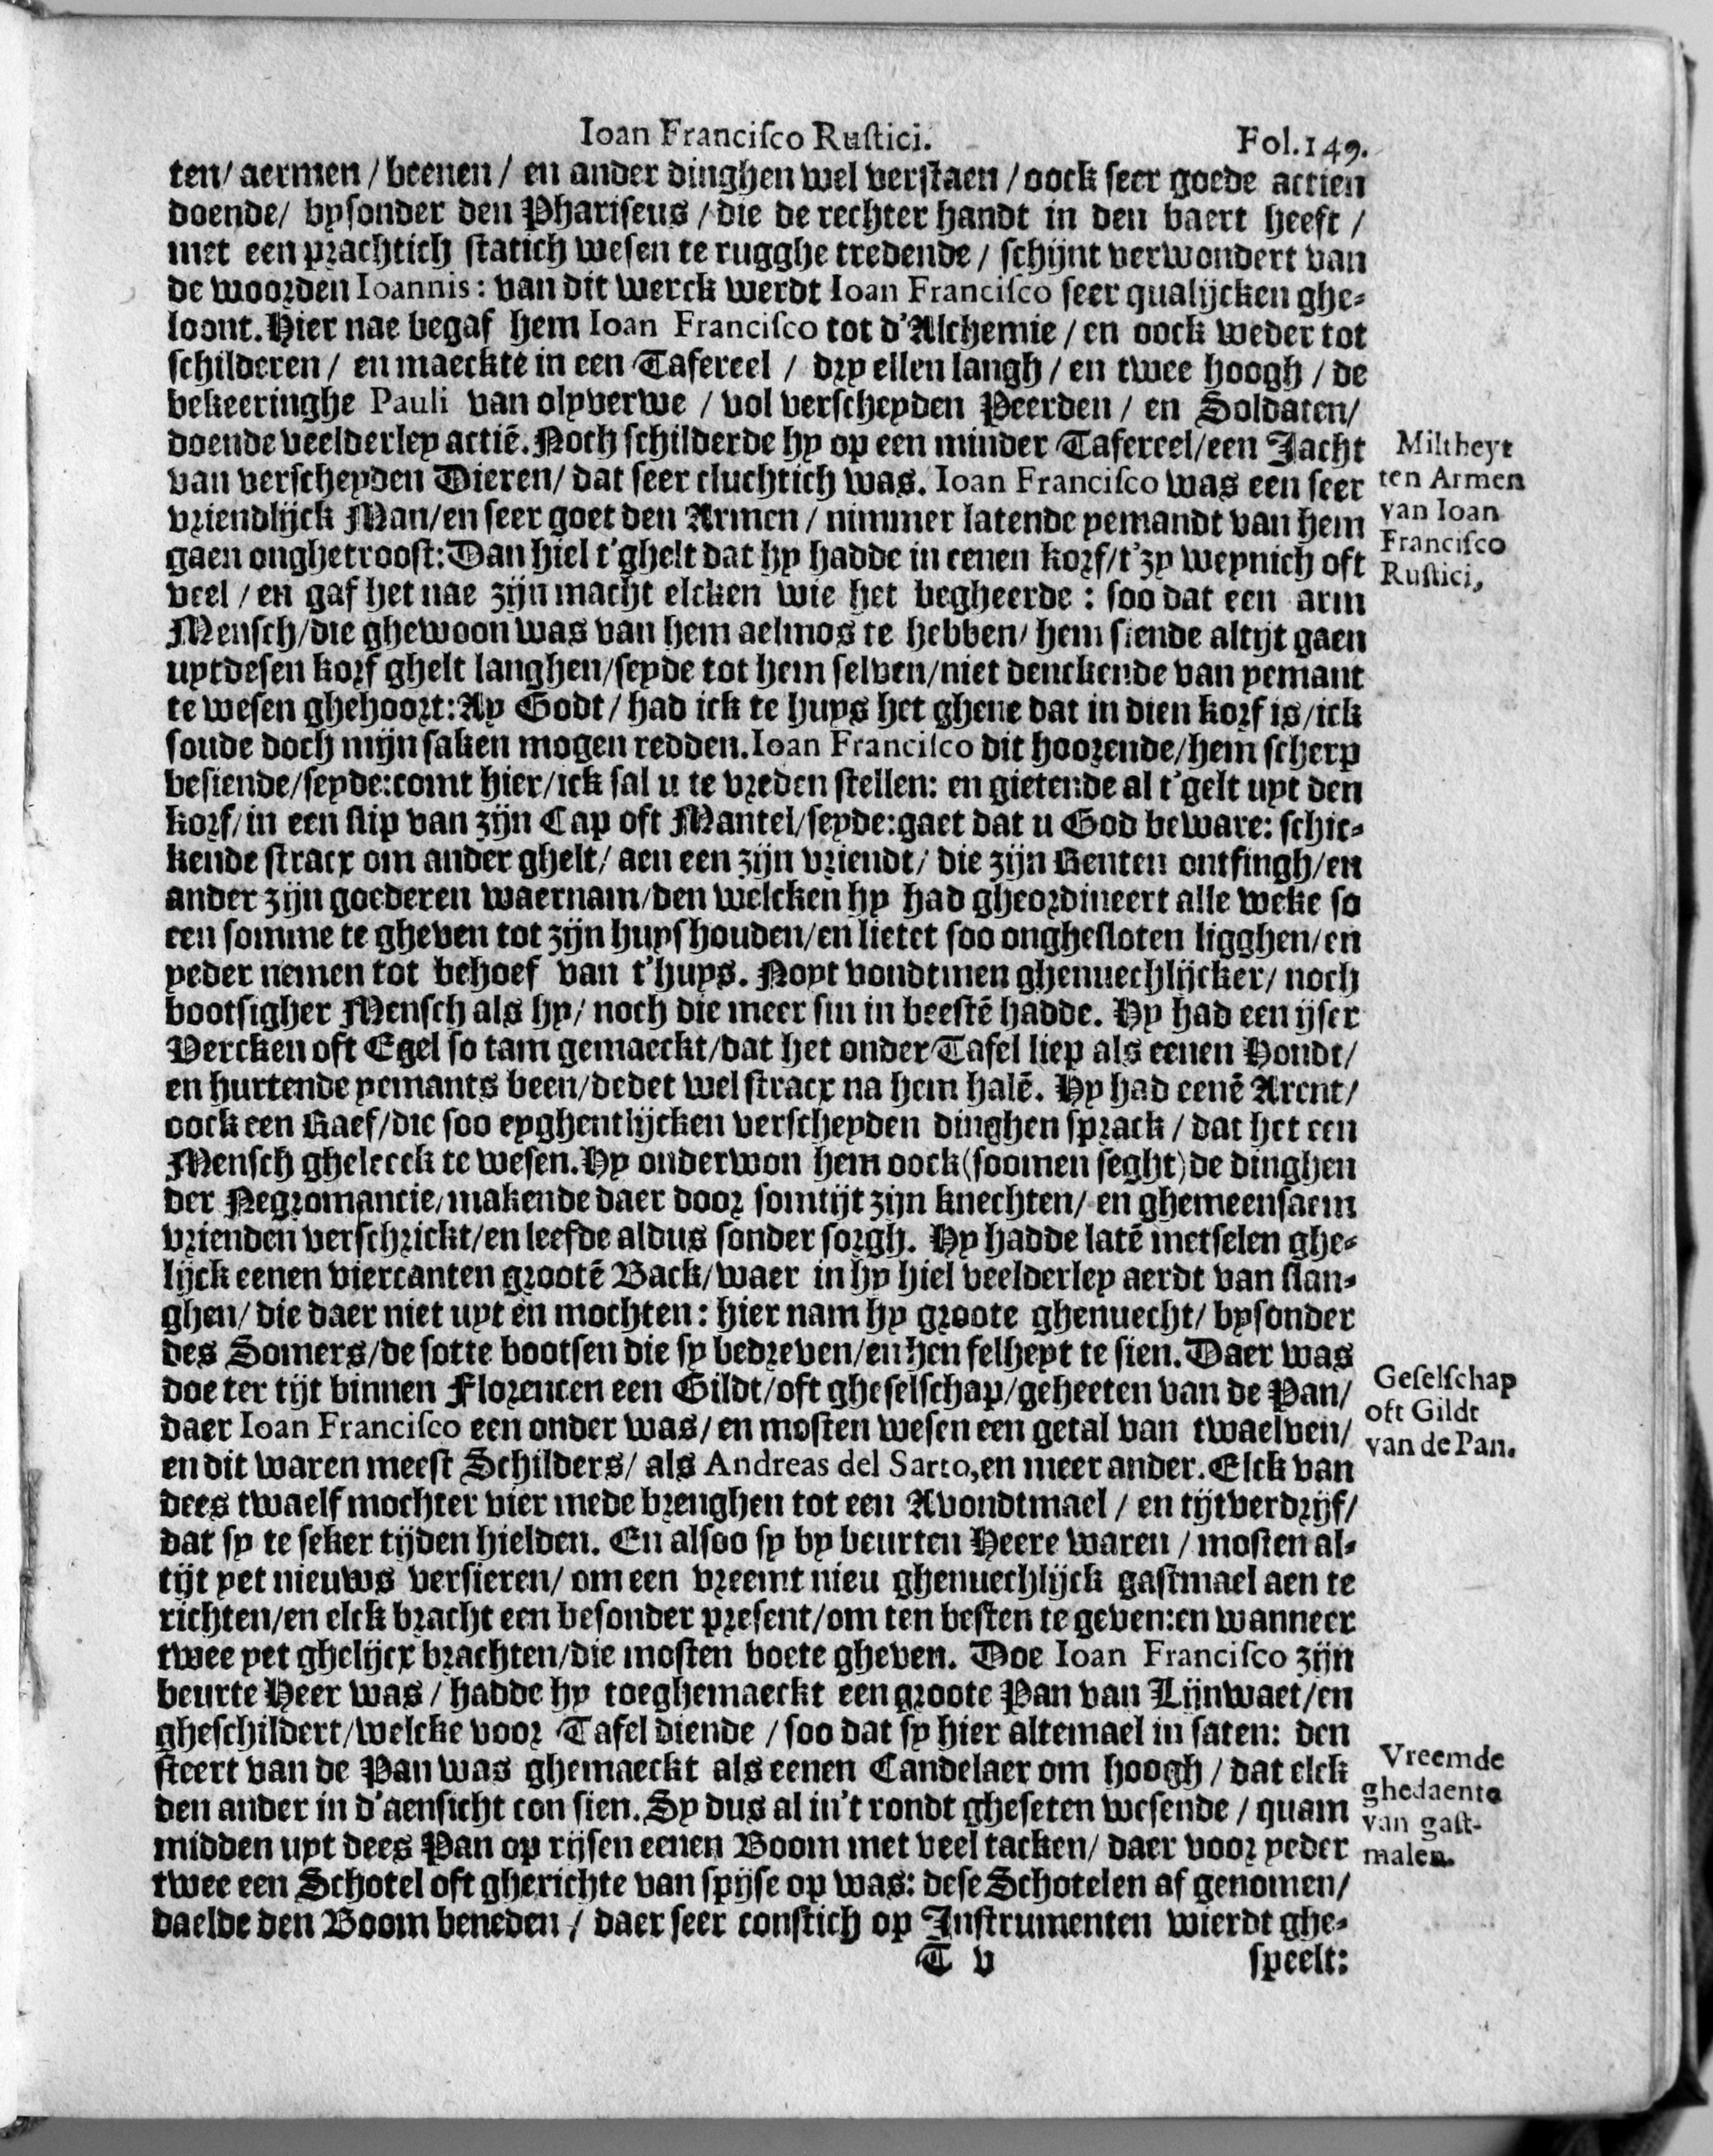 Ioan Franciſco Ruſtici. Fol. 149.
ten/ aermen / beenen / en ander dinghen wel verſtaen / oock ſeer goede actien
doende/ byſonder den Phariſeus / die de rechter handt in den baert heeft /
met een prachtich ſtatich weſen te rugghe tredende / ſchijnt verwondert van
de woorden Ioannis: van dit werck werdt Ioan Franciſco ſeer qualijcken ghe-
loont. Hier nae begaf hem Ioan Franciſco tot d'Alchemie / en oock weder tot
ſchilderen / en maeckte in een Tafereel / dry ellen langh / en twee hoogh / de
bekeeringhe Pauli van olyverwe / vol verſcheyden Peerden / en Soldaten/
doende veelderley actiē. Noch ſchilderde hy op een minder Tafereel/een Jacht
van verſcheyden Dieren/ dat ſeer cluchtich was. Ioan Franciſco was een ſeer
vriendlijck Man/en ſeer goet den Armen / nimmer latende yemandt van hem
gaen onghetrooſt: Dan hiel t'ghelt dat hy hadde in eenen korf/t'zy weynich oft
veel / en gaf het nae zijn macht elcken wie het begheerde : ſoo dat een arm
Menſch/die ghewoon was van hem aelmos te hebben/ hem ſiende altijt gaen
uytdeſen korf ghelt langhen/ſeyde tot hem ſelven/niet denckende van yemant
te weſen ghehoort: Ay Godt / had ick te huys het ghene dat in dien korf is/ick
ſoude doch mijn ſaken mogen redden. Ioan Franciſco dit hoorende/hem ſcherp
beſiende/ſeyde: comt hier/ick ſal u te vreden ſtellen: en gietende al t'gelt uyt den
korf/in een ſlip van zijn Cap oft Mantel/ſeyde: gaet dat u God beware: ſchic-
kende ſtracx om ander ghelt/ aen een zijn vriendt/ die zijn Renten ontfingh/en
ander zijn goederen waernam/den welcken hy had gheordineert alle weke ſo
een ſomme te gheven tot zijn huyſhouden/en lietet ſoo onghesloten ligghen/en
yeder nemen tot behoef van t'huys. Noyt vondtmen ghenuechlijcker/ noch
bootſigher Menſch als hy/ noch die meer ſin in beeſtē hadde. Hy had een ijſer
Vercken oft Egel ſo tam gemaeckt/dat het onder Tafel liep als eenen Hondt/
en hurtende yemants been/dedet wel ſtracx na hem halē. Hy had eenē Arent/
oock een Raef/die ſoo eyghentlijcken verſcheyden dinghen ſprack / dat het een
Menſch gheleeck te weſen. Hy onderwon hem oock (ſoomen ſeght) de dinghen
der Negromantie/makende daer door ſomtijt zijn knechten/ en ghemeenſaem
vrienden verſchrickt/en leefde aldus ſonder ſorgh. Hy hadde latē metſelen ghe-
lijck eenen viercanten grootē Back/waer in hy hiel veelderley aerdt van ſlan-
ghen/ die daer niet uyt en mochten: hier nam hy groote ghenuecht/ byſonder
des Somers/de ſotte bootſen die ſy bedreven/en hen felheyt te ſien. Daer was
doe ter tijt binnen Florencen een Gildt/oft gheſelſchap/geheeten van de Pan/
daer Ioan Franciſco een onder was/ en moſten weſen een getal van twaelven/
en dit waren meeſt Schilders/ als Andreas del Sarto, en meer ander. Elck van
dees twaelf mochter vier mede brenghen tot een Avondtmael / en tijtverdrijf/
dat ſy te ſeker tijden hielden. En alſoo ſy by beurten Heere waren / moſten al-
tijt yet nieuws verſieren/ om een vreemt nieu ghenuechlijck gaſtmael aen te
richten/en elck bracht een beſonder preſent/om ten beſten te geven: en wanneer
twee yet ghelijcx brachten/die moſten boete gheven. Doe Ioan Franciſco zijn
beurte Heer was / hadde hy toeghemaeckt een groote Pan van Lijnwaet/en
gheſchildert/welcke voor Tafel diende / ſoo dat ſy hier altemael in ſaten: den
ſteert van de Pan was ghemaeckt als eenen Candelaer om hoogh / dat elck
den ander in d'aenſicht con ſien. Sy dus al in't rondt gheſeten weſende / quam
midden uyt dees Pan op rijſen eenen Boom met veel tacken/ daer voor yeder
twee een Schotel oft gherichte van ſpijſe op was: deſe Schotelen af genomen/
daelde den Boom beneden / daer ſeer conſtich op Inſtrumenten wierdt ghe-
T v ſpeelt:
Miltheyt
ten Armen
van Ioan
Franciſco
Ruſtici,
Geſelſchap
oft Gildt
van de Pan.
Vreemde
ghedaente
van gaſt-
malen.